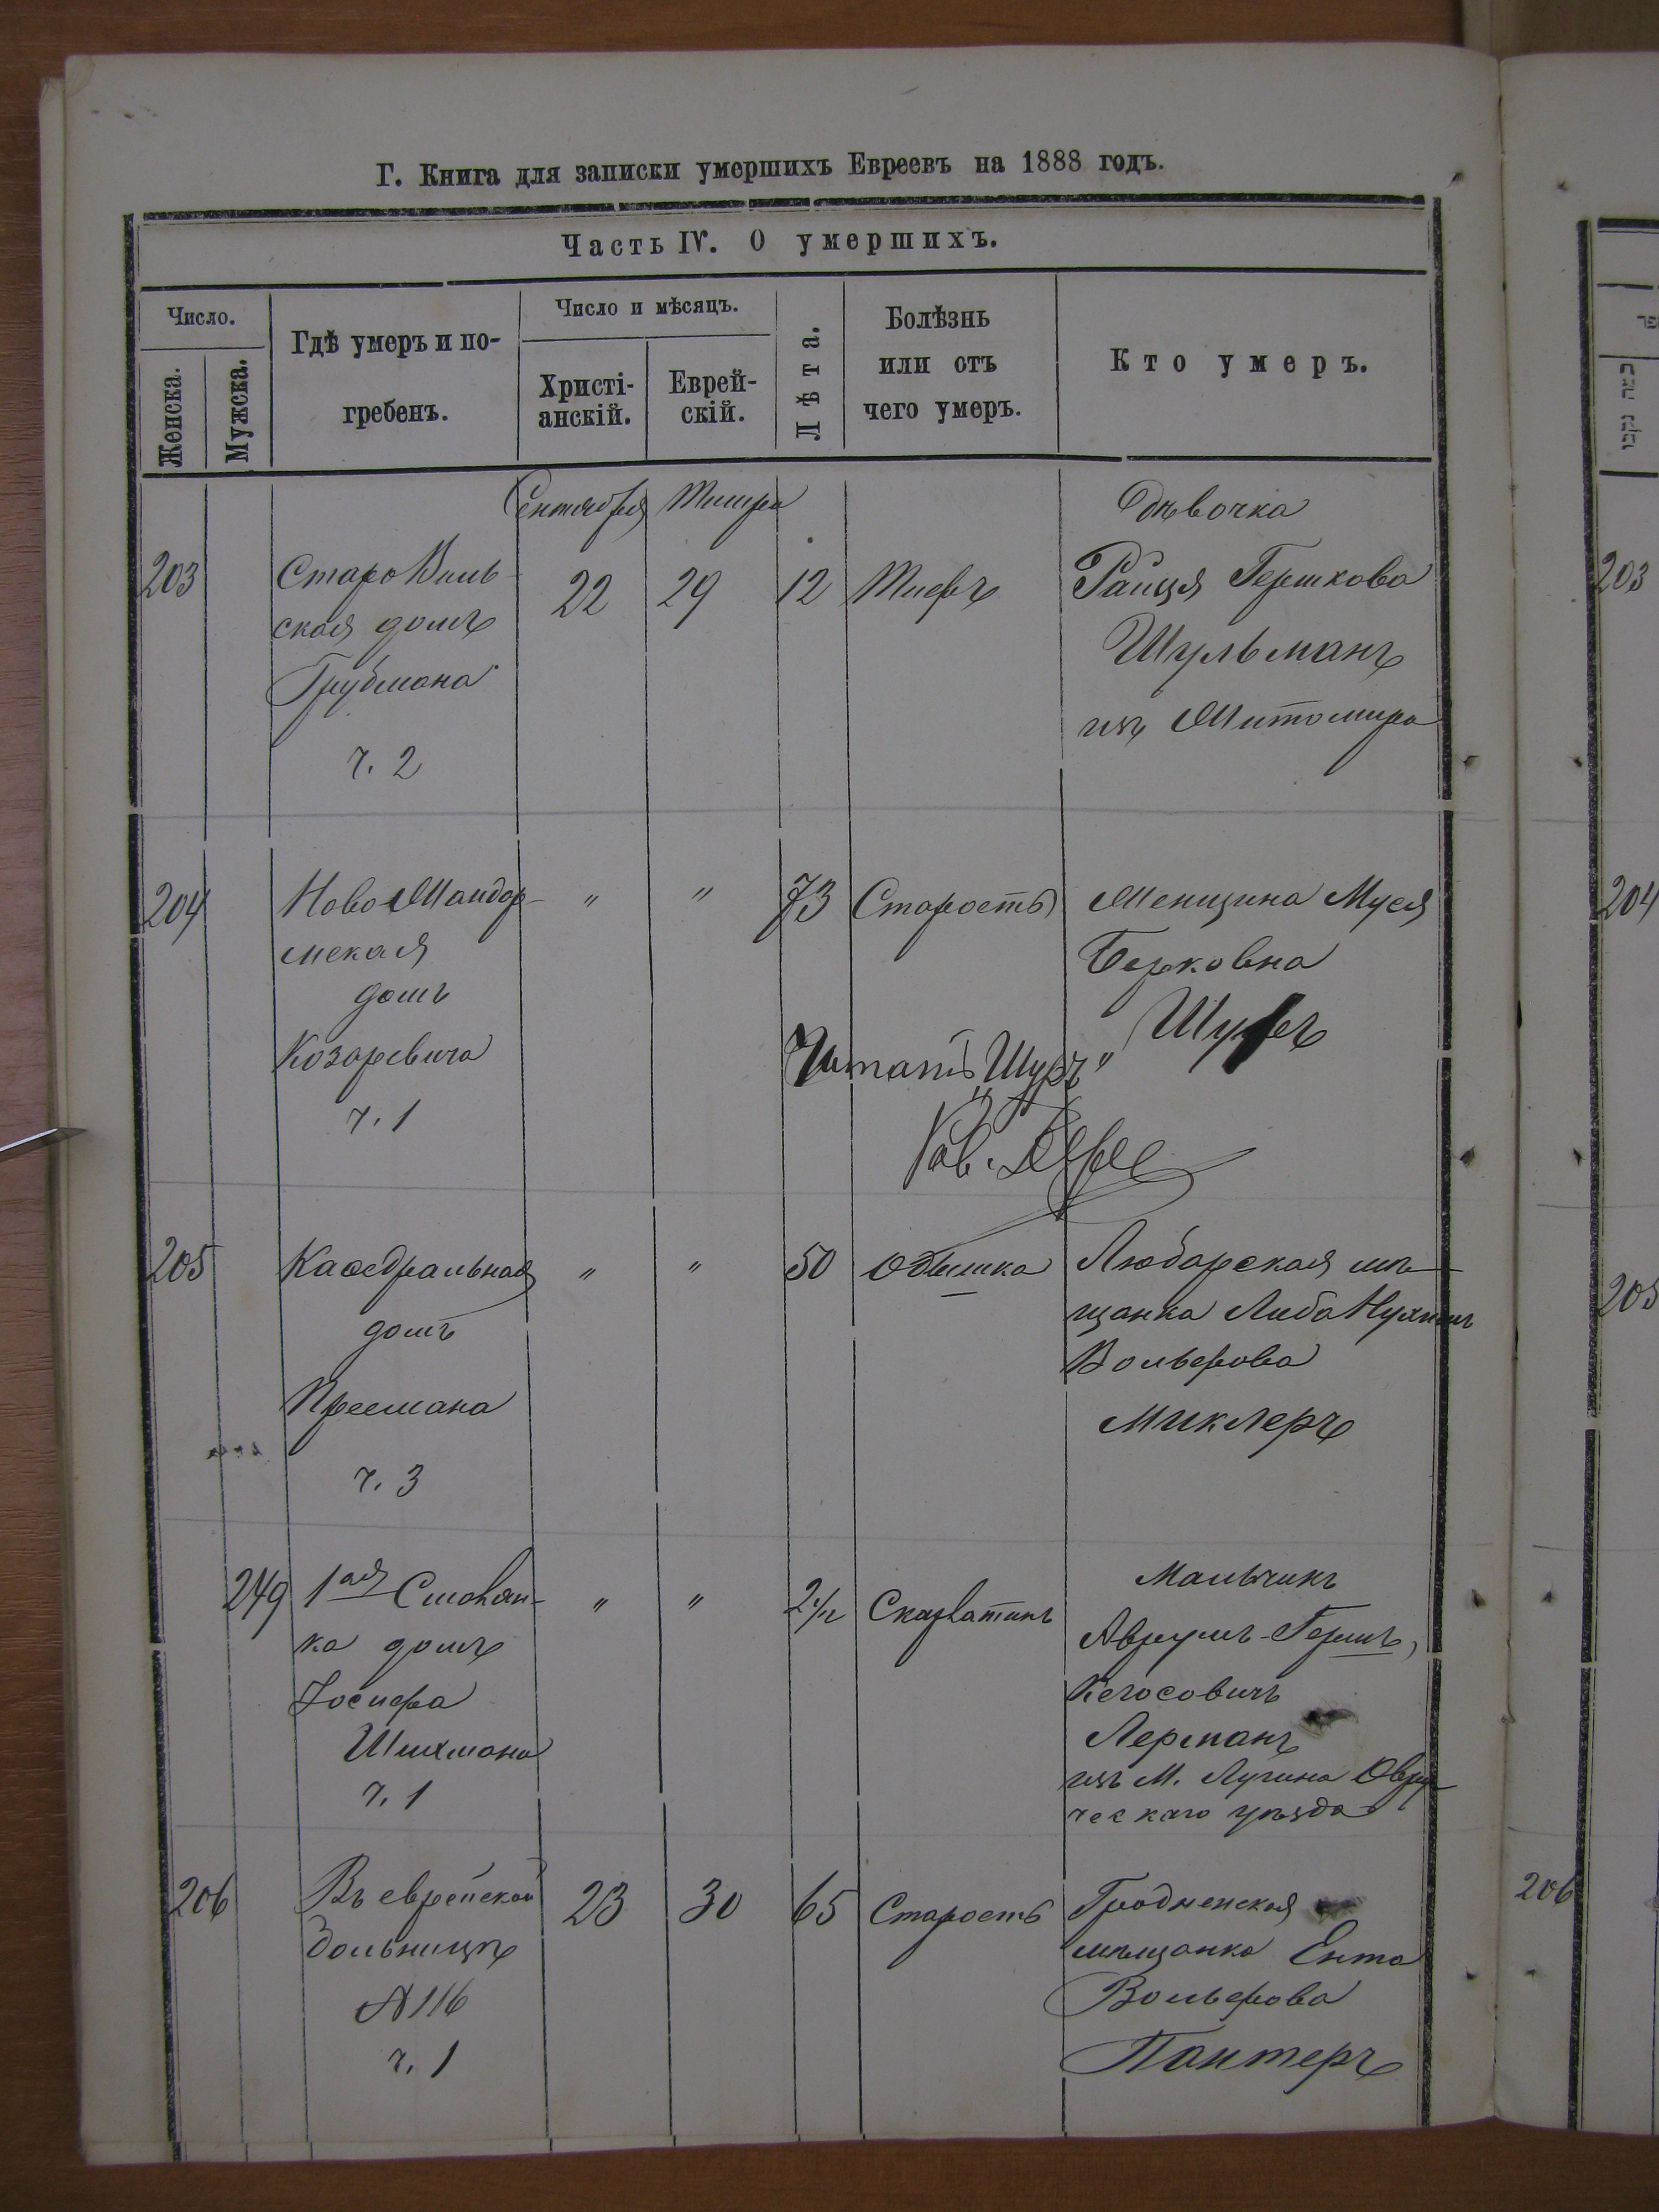 Г. Книга для записки умершихъ Евреевъ на 1888 годъ.
Часть IV. О умершихъ.
Число.
Женска.
Мужска.
Гдѣ умеръ и по-
гребенъ.
Число и мѣсяцъ.
Христі-
анскій.
Еврей-
скій.
Лѣта.
Болѣзнь
или отъ
чего умеръ.
Кто умеръ.
Сентября Тишри
203
Старо Виль-
ская домъ
Грубмана
ч. 2
22
29
12
Тиеръ
Дѣвочка
Райця Гершкова
Шульманъ
изъ Житомира
204
Ново Жандар-
мская
домъ
Козаревича
ч. 1
"
"
73
Старость
Женщина Муся
Берковна
Читать „Шуръ"
Рав.
205
Каѳедральная
домъ
Пресмана
ч. 3
"
"
50
Одышка
Любарская мѣ-
щанка Либа
Вольфова
Миклеръ
249
1ая Смолян-
ка домъ
Іосифа
Шихмана
ч. 1
"
"
2 1/2
Скарлатинъ
Мальчикъ
Аврумъ-Гершъ,
Лерманъ
изъ М. Лугина Овру-
ческаго уѣзда
206
Въ еврейской
больницѣ
№ 116
ч. 1
23
30
65
Старость
Гродненская
мѣщанка Ента
Вольфова
Пантеръ
203
204
205
206